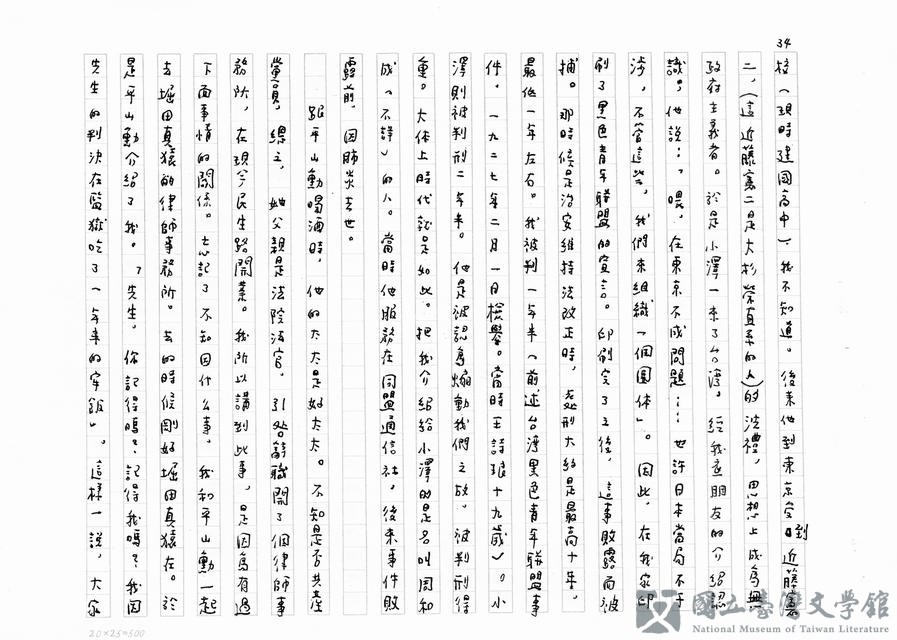 34
校(現時建國高中),我不知道。後來他到東京受到近藤憲
二,(這近藤憲二是大杉榮直系的人)的洗禮,思想上成為無
政府主義者。於是小澤一來了台灣,經我查朋友的介紹認
識,他說:「喂,在東京不成問題…也許日本當局不干
涉,不管這些,我們來組織一個團体」。因此,在我家印
刷了黑色青年聯盟的宣言。印刷完了之後,這事敗露而被
捕。那時候是治安維持法改正時,處刑大約是最高十年,
最低一年左右。我被判一年半(前述台湾黑色青年聯盟事
件。一九二七年二月一日檢舉。當時王詩琅十九歲)。小
澤則被判刑二年半。他是被認為煽動我們之故,被判刑得
重。大体上時代就是如此。把我介紹給小澤的是名叫周和
成(不詳)的人。當時他服務在同盟通信社,後來事件敗
露前,因肺炎去世。
跟平山勳喝酒時,他的太太是好太太。不知是否共產
黨員,總之,她父親是法院法官,引咎辭職開了個律師事
務所,在現今民生路開業。我所以講到此事,是因為有過
下面事情的關係。忘記了不知因什么事,我和平山勳一起
去堀田真猿的律師事務所。去的時候剛好堀田真猿在。於
是平山勳介紹了我。「先生,你記得嗎?記得我嗎?我因
先生的判決在監獄吃了一年半的牢飯」。這樣一說,大家
20×25=500
國立臺灣文學館
National Museum of Taiwan Literature